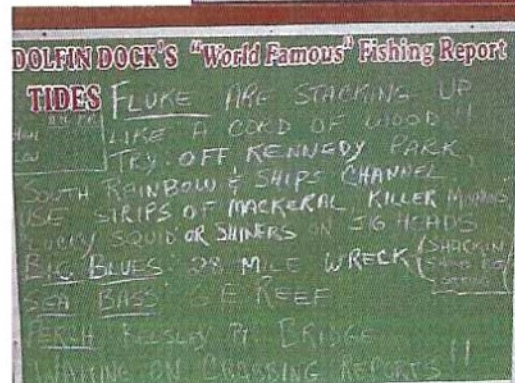 DOLFIN DOCK'S "World Famous" Fishing Report
TIDES FLUKE ARE STACKING UP
LIKE A CORD OF WOOD!!
LOW
TRY: OFF KENNEDY PARK,
SOUTH REINBOW & SHIPS CHANNEL
USE STRIPS OF MACKERAL KILLER
SQUID OR SHINERS ON JIG HEADS
BIG BLUES: 28 MILE WRECK
SEA BASS: REEF
PERCH BRIDGE
WAITING ON CRABBING REPORTS!!